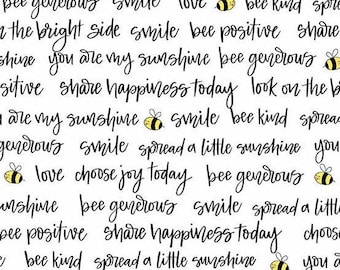 bee generous smile love bee kind spre
n the bright side smile bee positive share
shine you are my sunshine bee generous
ositive share happiness today look on the b
u are my sunshine smile bee kind spread
nerous smile spread a little sunshine you
love choose joy today bee generous
unshine bee generous smile spread a little
bee positive share happiness today choose
e bee kind spread a little sunshine you a